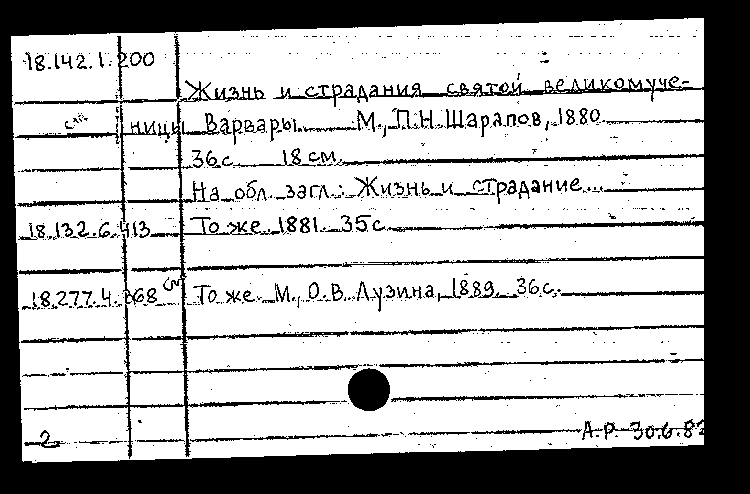 18.142.1.200
Жизнь и страдания святой великомуче-
ницы Варвары. М., П.Н. Шарапов, 1880.
36с. 18 см.
На обл. загл.: Жизнь и страдание...
18.132.6.413 То же 1881. 35с.
18.277.4.868 То же. М., О.В. Лузина, 1889. 36с.
2 А.Р. 30.6.82